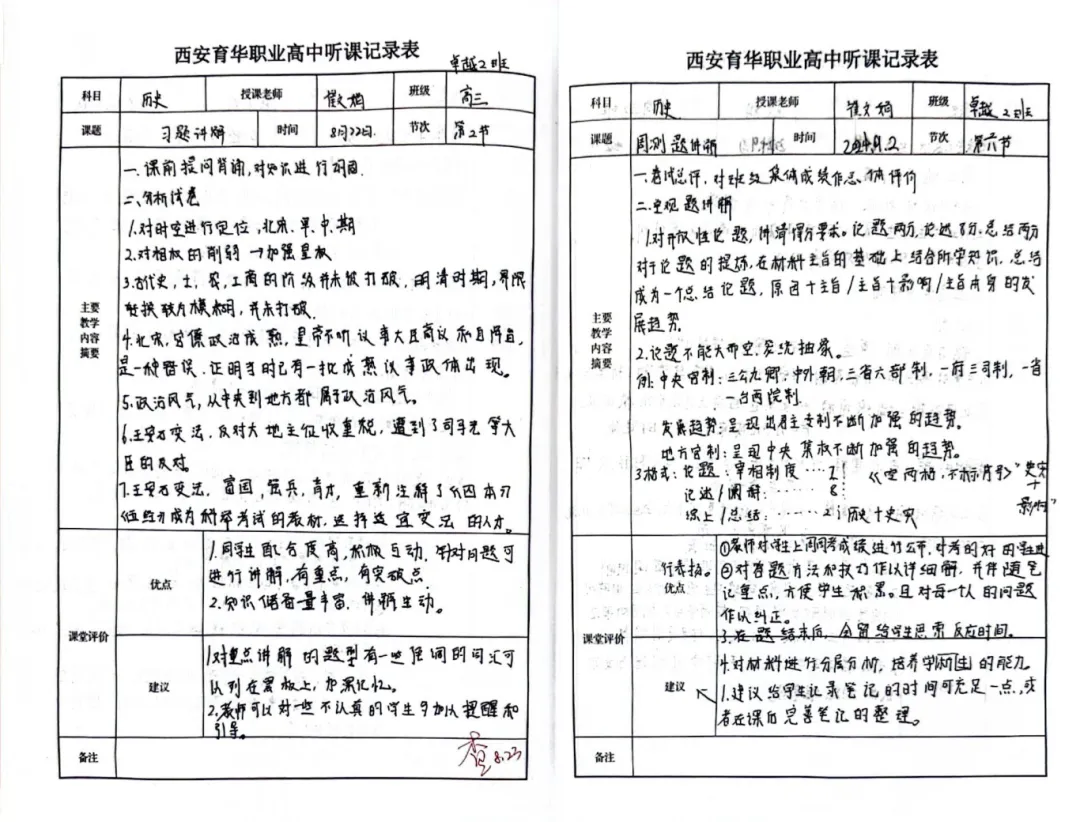 西安育华职业高中听课记录表
卓越2班
科目 历史 授课老师 崔文娟 班级 高三
课题 习题讲解 时间 8月22日. 节次 第2节
主要教学内容摘要
一.课前提问背诵,对知识进行巩固.
二、分析试卷
1.对时空进行定位,北宋.早.中.期
2.对相权的削弱→加强皇权
3.古代史,士,农,工商的阶级并未被打破,明清时期,界限
较模糊,并未打破.
4.北宋,官僚政治成熟,皇帝不听议事大臣商议
是一种错误.证明当时已有一批成熟议事政体出现。
5.政治风气,从中央到地方都属于政治风气。
6.王安石变法,反对大地主征收重税,遭到了司马光等大
臣的反对.
7.王安石变法,富国,强兵,育才,重新注解了
成为科举考试的教材,选择适宜变法的人才。
课堂评价
优点
1.同学生配合度高,积极互动.针对问题可
进行讲解,有重点,有突破点
2.知识储备量丰富.讲解生动。
建议
1.对重点讲解的题型有一些强调的词汇可
以列在黑板上,加深记忆。
2.教师可以对一些不认真的学生多加以提醒和
引导。
备注
8.23
西安育华职业高中听课记录表
科目 历史 授课老师 崔文娟 班级 卓越2班
课题 周测题讲解 时间 2024.9.2 节次 第六节
主要教学内容摘要
一.考试总评,对班级集体成绩作总评价
二.主观题讲解
1.对开放性论题,讲清得分要求。论题两分,论述8分,总结两分
对于论题的提炼,在材料主旨的基础上结合所学知识,总结
成为一个总结论题,原因+主旨/主旨+影响/主旨本身的发
展趋势.
2.论题不能大而空.笼统抽象。
例:中央官制:三公九卿,中外朝,三省六部制,一府三司制,一省
一台两院制.
发展趋势:呈现出君主专制不断加强的趋势。
地方官制:呈现中央集权不断加强的趋势。
3.格式:论题:宰相制度……2 《空两格,不标序号》"史实
论述/阐释:……8 +
综上/总结:……2:历史+史实 影响"
课堂评价
优点
①教师对学生上周周考成绩进行公布,对考的好的学生进
行表扬。②对答题方法和技巧作以详细讲解,并伴随笔
记重点,方便学生积累。且对每一个人的问题
作以纠正。
3.在题结束后,会留给学生思索反应时间。
4.对材料进行分层分析,培养学生的能力。
建议
1.建议给学生记录笔记的时间可充足一点,或
者在课后完善笔记的整理。
备注